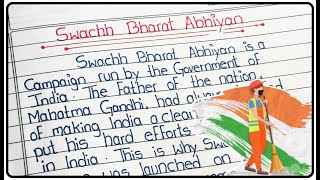 Swachh Bharat Abhiyan
Swachh Bharat Abhiyan is a
Campaign run by the Government of
India. The Father of the nation,
Mahatma Gandhi, had
of making India a clean
put his hard efforts
in India. This is why
was launched on